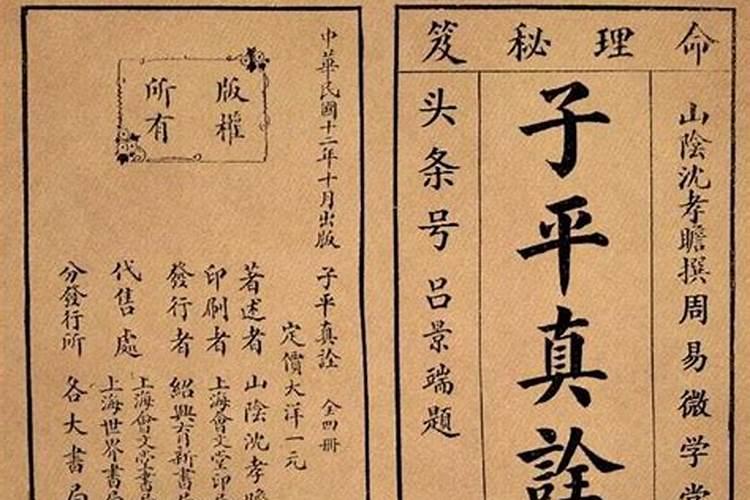 命理秘笈
山陰沈孝瞻撰周易微学
子平真詮
头条号呂景端題
中華民國十二年十月出版
版權
所有
子平真詮 全四冊
定價大洋一元
著述者 山陰沈孝瞻
印刷者 上海會文堂印
發行者 紹興育新書
代售處 上海會文堂書局
上海世界書局
分發行所 各大書局